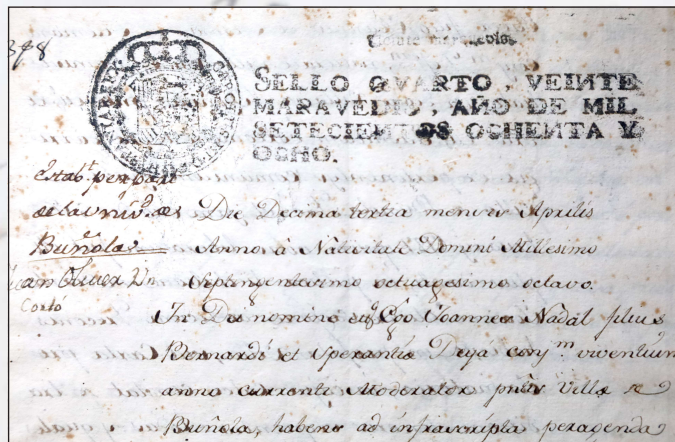 398
Veinte maravedis.
CAROLVS III D G HISPANIAR REX
SELLO QVARTO, VEINTE
MARAVEDIS, AÑO DE MIL
SETECIENTOS OCHENTA Y
OCHO.
Estab.t per part
de la univ.d de
Buñola
Juan Oliver Un
Cortó
Die Decima tertia mensis Aprilis
Anno à Nativitate Domini Millesimo
Septingentesimo octuagesimo octavo.
In Dei nomine Ego Joannes Nadal filius
Bernardi et Sperantiæ Deya conj.m viventium
anno currenti Moderator pntis Villæ de
Buñola, habens ad infrascripta peragenda